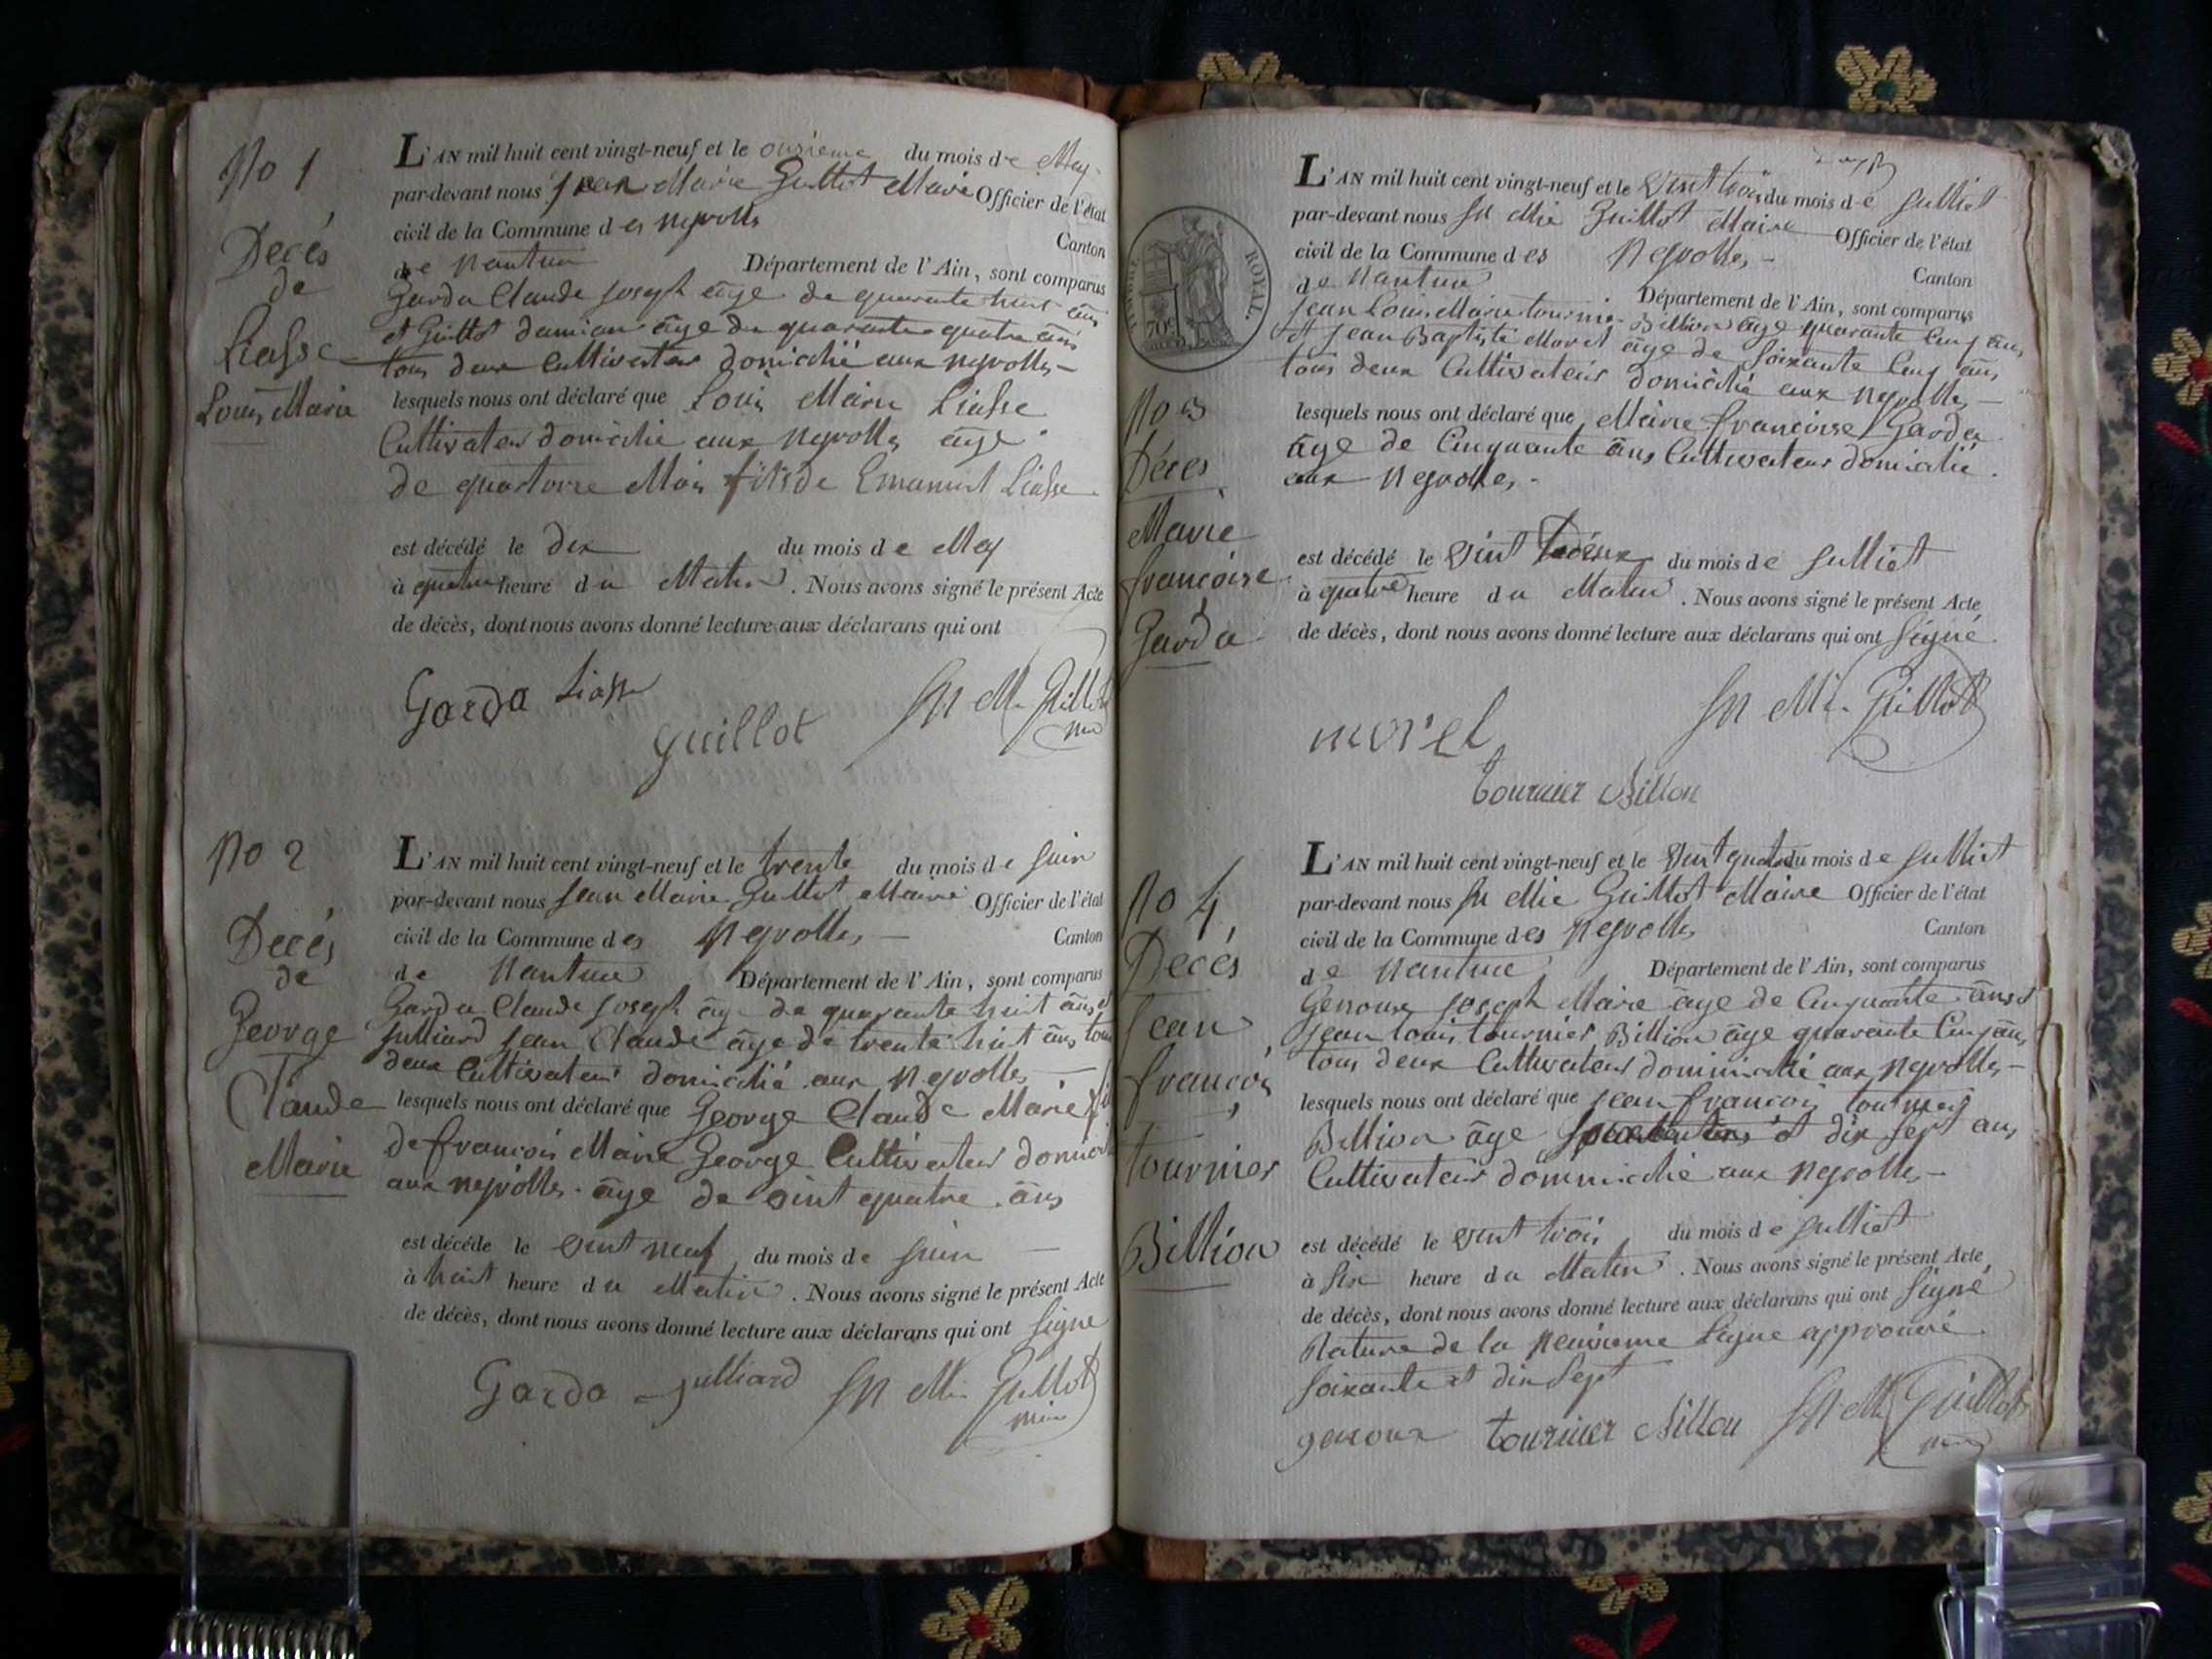 No 1
Decés
de
Liasse
Louis Marie
L'AN mil huit cent vingt-neuf et le onzieme du mois de May
par-devant nous Jean Marie Guillot Maire Officier de l'état
civil de la Commune des neyrolles
Canton
de Nantua Département de l'Ain, sont comparus
Garda Claude Joseph âge de quarante huit ans
et Guillot damian âge de quarante quatre ans
tous deux Cultivateur domicilié aux neyrolles
lesquels nous ont déclaré que Louis Marie Liasse
Cultivateur domicilié aux Neyrolles âge
de quatorze Mois fils de Emanuel Liasse
est décédé le dix du mois de May
à quatre heure du Matin. Nous avons signé le présent Acte
de décès, dont nous avons donné lecture aux déclarans qui ont
Garda Liasse
guillot Jn M. Guillot
No 2
Decés
de
George
Claude
Marie
L'AN mil huit cent vingt-neuf et le trente du mois de Juin
par-devant nous Jean Marie Guillot Maire Officier de l'état
civil de la Commune des Neyrolles Canton
de Nantua Département de l'Ain, sont comparus
Garda Claude Joseph âge de quarante huit ans et
Julliard Jean Claude âge de trente huit ans tous
deux Cultivateur domicilié aux Neyrolles
lesquels nous ont déclaré que George Claude Marie
de francois Marie George Cultivateur
aux neyrolles. âge de vint quatre ans
est décédé le vint neuf du mois de Juin
à huit heure du Matin. Nous avons signé le présent Acte
de décès, dont nous avons donné lecture aux déclarans qui ont Signe
Garda Julliard Jn M. Guillot
TIMBRE ROYAL
70c
No 3
Déces
Marie
francoise
Garda
L'AN mil huit cent vingt-neuf et le vint trois du mois de Julliet
par-devant nous Jn Mie Guillot Maire Officier de l'état
civil de la Commune des Neyrolles
Canton
de Nantua Département de l'Ain, sont comparus
Jean Louis Marie tournier Billion âge quarante Cinq ans
et Jean Baptiste Morel âge de Soixante Cinq ans
tous deux Cultivateur domicilié aux Neyrolles
lesquels nous ont déclaré que Marie francoise Garda
âge de Cinquante ans Cultivateur domicilié
aux Neyrolles
est décédé le vint deux du mois de Julliet
à quatre heure du Matin. Nous avons signé le présent Acte
de décès, dont nous avons donné lecture aux déclarans qui ont Signé
morel Jn Mi. Guillot
tournier Billon
No 4
Decés
Jean
francois
tournier
Billion
L'AN mil huit cent vingt-neuf et le vint quatre du mois de Julliet
par-devant nous Jn Mie Guillot Maire Officier de l'état
civil de la Commune des Neyrolles Canton
de Nantua Département de l'Ain, sont comparus
Genoux Joseph Marie âge de Cinquante ans et
Jean Louis tournier Billion âge quarante Cinq ans
tous deux Cultivateur domicilié aux Neyrolles
lesquels nous ont déclaré que Jean francois tournier
Billion âge et dix sept ans
Cultivateur domicilié aux Neyrolles
est décédé le vint trois du mois de Julliet
à Six heure du Matin. Nous avons signé le présent Acte
de décès, dont nous avons donné lecture aux déclarans qui ont Signé
Rature de la Neuvieme Ligne approuvé
Soixante et dix Sept
genoux tournier Billon Jn M. Guillot